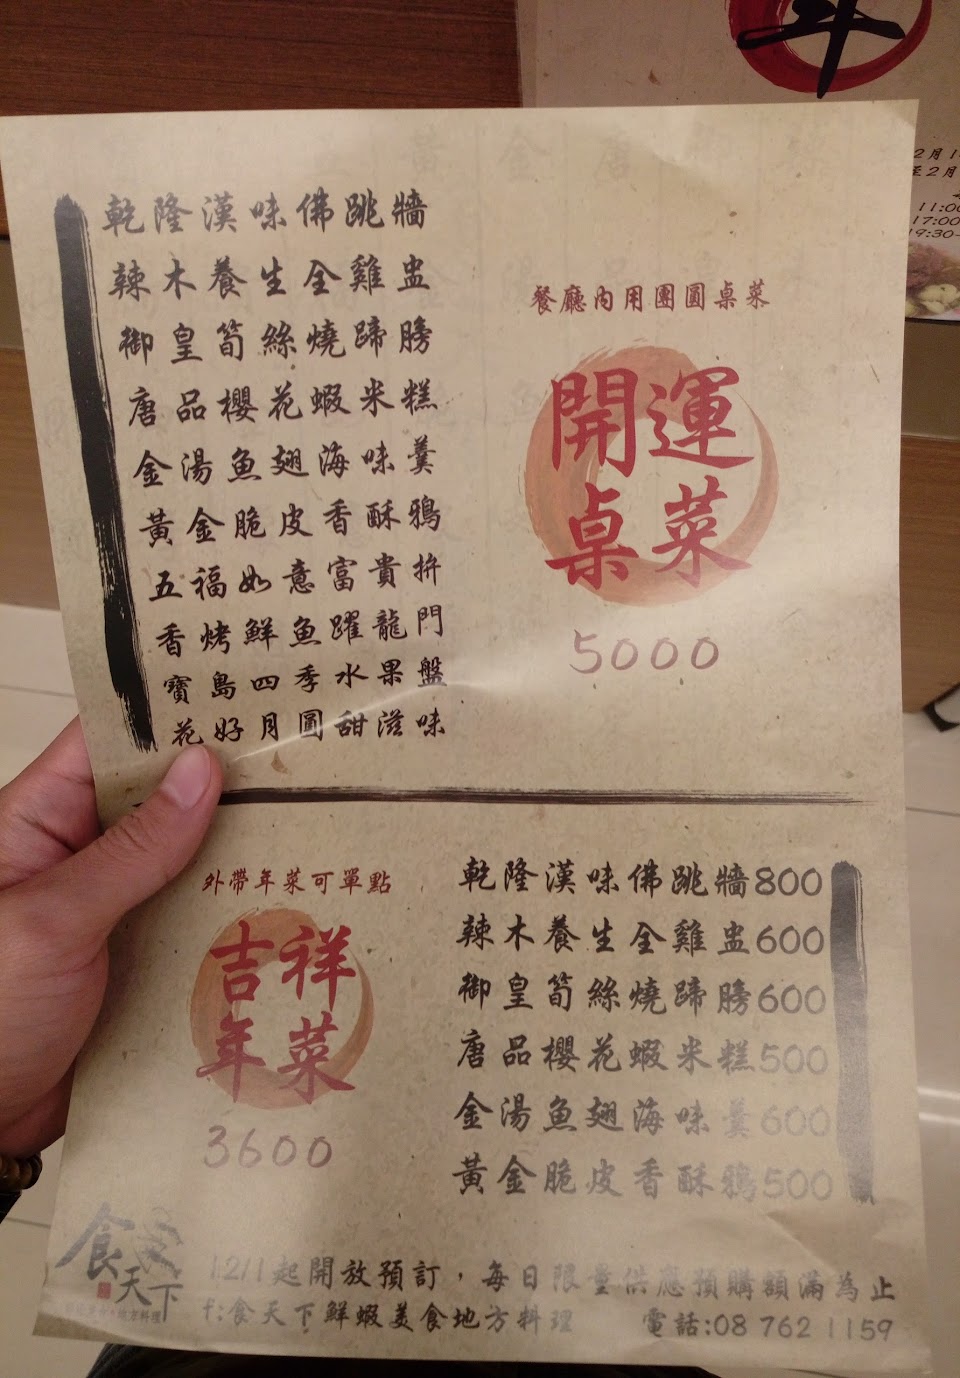 年
2月1
至2月
11:00
17:00
19:30-
乾隆漢味佛跳牆
辣木養生全雞盅
御皇筍絲燒蹄膀
唐品櫻花蝦米糕
金湯魚翅海味羹
黃金脆皮香酥鴉
五福如意富貴拚
香烤鮮魚躍龍門
寶島四季水果盤
花好月圓甜滋味
餐廳內用團圓桌菜
開運
桌菜
5000
外帶年菜可單點
吉祥
年菜
3600
乾隆漢味佛跳牆800
辣木養生全雞盅600
御皇筍絲燒蹄膀600
唐品櫻花蝦米糕500
金湯魚翅海味羹600
黃金脆皮香酥鴉500
食天下
地方料理
12/1起開放預訂，每日限量供應預購額滿為止
f:食天下鮮蝦美食地方料理
電話:08 762 1159